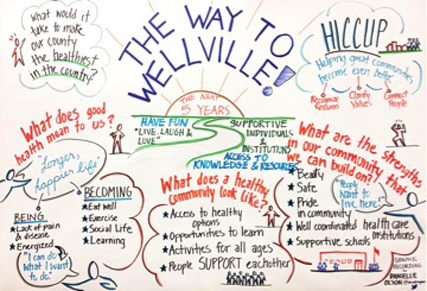 what would it
take to make
our county
the healthiest
in the country?
THE WAY TO
WELLVILLE!
HICCUP
Helping great communities
become even better
Recognize
Clarify
Values
Connect
People
THE NEXT
5 YEARS
HAVE FUN
"LIVE, LAUGH &
LOVE"
SUPPORTIVE
INDIVIDUALS
&
INSTITUTIONS
ACCESS TO
KNOWLEDGE & RESOURCES
What does good
health mean to us?
"Longer,
happier life"
BEING
★ Lack of pain
& disease
★ Energized
"I can do
what I want
to do."
BECOMING
★ Eat well
★ Exercise
★ Social Life
★ Learning
What does a healthy
community look like?
★ Access to healthy
options
★ Opportunities to learn
★ Activities for all ages
★ People SUPPORT eachother
What are the strengths
in our community that
we can build on?
★ Beauty
★ Safe
★ Pride
in community
★ Well coordinated health care
institutions
★ Supportive schools
"People
want to
live here!"
GRAPHIC
RECORDING
DANIELLE
OLSON